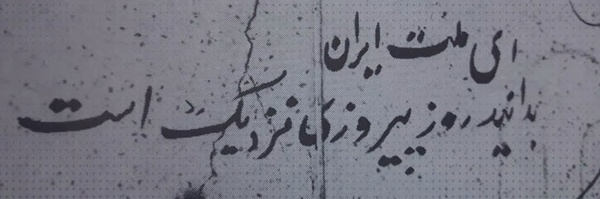 ای ملت ایران
بدانید روز پیروزی نزدیک است